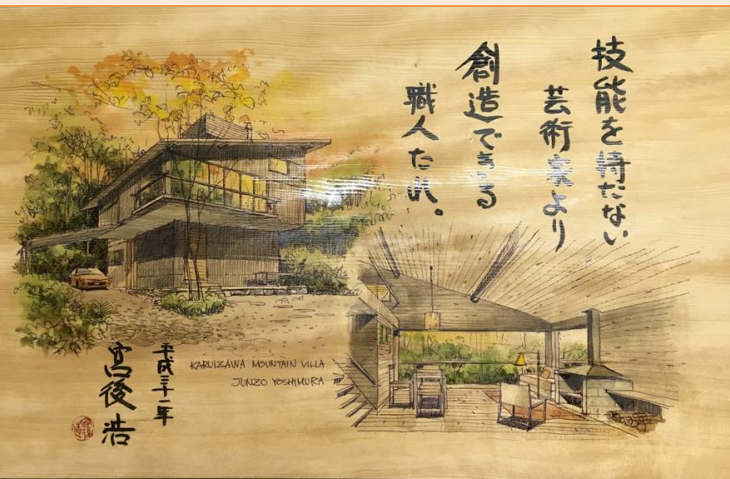 技能を持たない
芸術家より
創造できる
職人たれ。
KARUIZAWA MOUNTAIN VILLA
JUNZO YOSHIMURA
平成三十一年
宮後浩